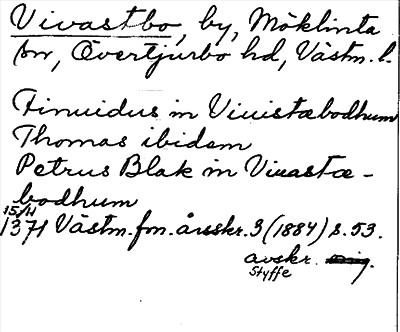 Vivastbo, by, Möklinta
sn, Övertjurbo hd, Västm. l.
Finuidus in Viuistæbodhum
Thomas ibidem
Petrus Blak in Viuastæ-
bodhum
15/4
1371 Västm. fm. årsskr. 3 (1884) s. 53.
avskr.
Styffe